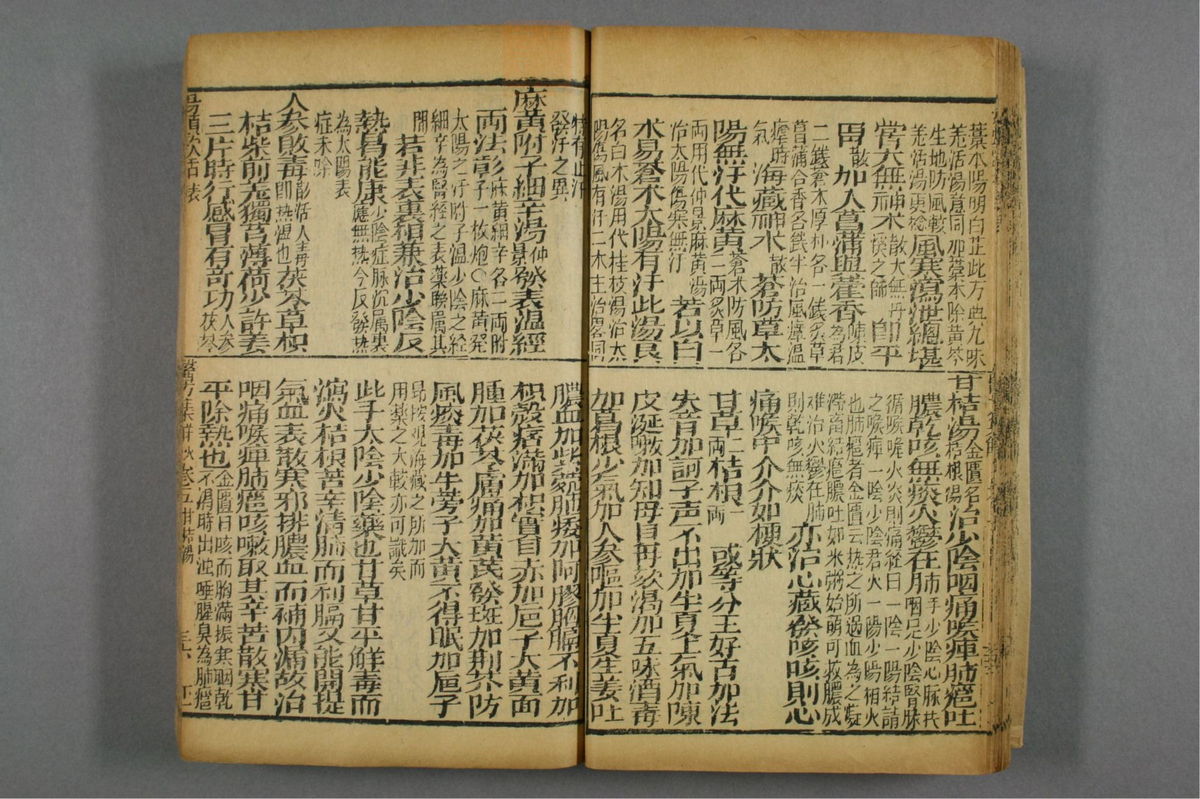 藁本陽明白芷此方典九味
羌活湯意同加藁本除黃芩
生地防風較羌活湯更穩風寒瀉泄總堪
甞六無神术散
胃散加入菖蒲與藿香陳皮為君
二錢蒼术厚朴各一錢炙草
菖蒲合香各錢半治風瘴濕
瘧時氣海藏神术散蒼防草太
陽無汗代麻黃蒼术防風各二兩炙草一
兩用代仲景麻黃湯治太陽傷寒無汗若以白
术易蒼术太陽有汗此湯良
名白术湯用代桂枝湯治太
陽傷風有汗二术主治畧同
甘桔湯金匱名桔梗湯治少陰咽痛喉痺肺癰吐
膿乾咳無痰火鬱在肺手少陰心脉挾咽足少陰腎脉
循喉嚨火炎則痛經曰一陰一陽結謂
之喉痺一陰少陰君火一陽少陽相火
也肺癰者金匱云熱之所過血為之凝
滯畜結癰膿吐如米粥始萌可救膿成
難治火鬱在肺則乾咳無痰亦治心藏發咳咳則心
痛喉中介介如梗狀
甘草二兩桔梗一兩 或等分王好古加法
失音加訶子声不出加生夏上氣加陳
皮涎嗽加知母貝母欬渴加五味酒毒
加葛根少氣加人參嘔加生夏生姜吐
特有止汗發汗之異
麻黃附子細辛湯仲景發表溫經
兩法彰麻黃細辛各二兩附子一枚炮○麻黃發
太陽之汗附子溫少陰之經
細辛為腎經之表藥聯属其
間 若非表裏相兼治少陰反
熱曷能康少陰症脉沉属裏應無熱今反發熱
為太陽表症未除
人參敗毒即熱濕也茯苓草枳
桔柴前羌獨芎薄荷少許姜
三片時行感冒有奇功人參茯苓
湯頭歌括 表
膿血加紫菀肺痿加阿膠胸膈不利加
枳殼痞滿加枳實目赤加巵子大黃面
腫加茯苓膚痛加黃芪發斑加荆芥防
風疫毒加牛蒡子大黃不得眠加巵子
昂按覌海藏之所加而用藥之大較亦可識矣
此手太陰少陰藥也甘草甘平觧毒而
瀉火桔梗苦辛清肺而利膈又能開提
氣血表散寒邪排膿血而補內漏故治
咽痛喉痺肺癰咳嗽取其辛苦散寒甘
平除熱也金匱曰咳而胸滿振寒咽乾不渴時出濁唾腥臭為肺癰
醫方集觧 卷五 甘桔湯 三六